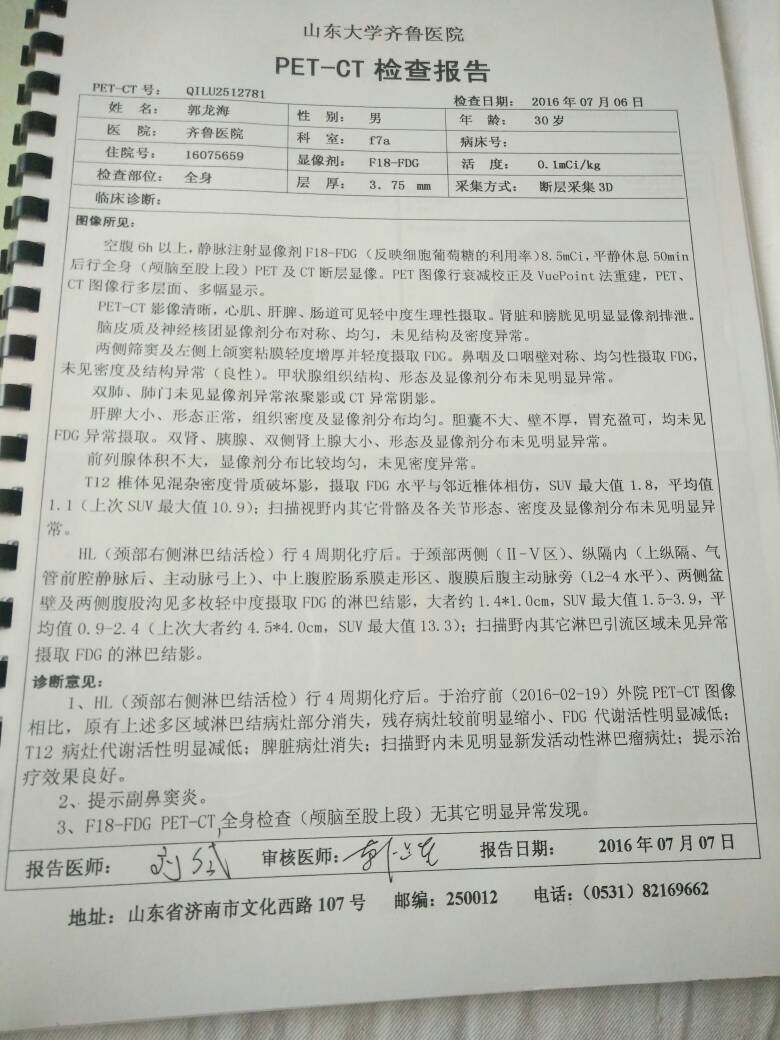 山东大学齐鲁医院
PET-CT 检查报告
PET-CT 号: QILU2512781 检查日期: 2016 年 07 月 06 日
姓 名: 郭龙海 性 别: 男 年 龄: 30 岁
医 院: 齐鲁医院 科 室: f7a 病床号:
住院号: 16075659 显像剂: F18-FDG 活 度: 0.1mCi/kg
检查部位: 全身 层 厚: 3.75 mm 采集方式: 断层采集 3D
临床诊断:
图像所见:
空腹 6h 以上,静脉注射显像剂 F18-FDG (反映细胞葡萄糖的利用率)8.5mCi,平静休息 50min
后行全身(颅脑至股上段)PET 及 CT 断层显像。PET 图像行衰减校正及 VuePoint 法重建,PET、
CT 图像行多层面、多幅显示。
PET-CT 影像清晰,心肌、肝脾、肠道可见轻中度生理性摄取。肾脏和膀胱见明显显像剂排泄。
脑皮质及神经核团显像剂分布对称、均匀,未见结构及密度异常。
两侧筛窦及左侧上颌窦粘膜轻度增厚并轻度摄取 FDG。鼻咽及口咽壁对称、均匀性摄取 FDG,
未见密度及结构异常(良性)。甲状腺组织结构、形态及显像剂分布未见明显异常。
双肺、肺门未见显像剂异常浓聚影或 CT 异常阴影。
肝脾大小、形态正常,组织密度及显像剂分布均匀。胆囊不大、壁不厚,胃充盈可,均未见
FDG 异常摄取。双肾、胰腺、双侧肾上腺大小、形态及显像剂分布未见明显异常。
前列腺体积不大,显像剂分布比较均匀,未见密度异常。
T12 椎体见混杂密度骨质破坏影,摄取 FDG 水平与邻近椎体相仿,SUV 最大值 1.8,平均值
1.1(上次 SUV 最大值 10.9);扫描视野内其它骨骼及各关节形态、密度及显像剂分布未见明显异
常。
HL(颈部右侧淋巴结活检)行 4 周期化疗后。于颈部两侧(Ⅱ-Ⅴ区)、纵隔内(上纵隔、气
管前腔静脉后、主动脉弓上)、中上腹腔肠系膜走形区、腹膜后腹主动脉旁(L2-4 水平)、两侧盆
壁及两侧腹股沟见多枚轻中度摄取 FDG 的淋巴结影,大者约 1.4*1.0cm,SUV 最大值 1.5-3.9,平
均值 0.9-2.4(上次大者约 4.5*4.0cm,SUV 最大值 13.3);扫描野内其它淋巴引流区域未见异常
摄取 FDG 的淋巴结影。
诊断意见:
1、HL(颈部右侧淋巴结活检)行 4 周期化疗后。于治疗前(2016-02-19)外院 PET-CT 图像
相比,原有上述多区域淋巴结病灶部分消失,残存病灶较前明显缩小、FDG 代谢活性明显减低;
T12 病灶代谢活性明显减低;脾脏病灶消失;扫描野内未见明显新发活动性淋巴瘤病灶;提示治
疗效果良好。
2、提示副鼻窦炎。
3、F18-FDG PET-CT 全身检查(颅脑至股上段)无其它明显异常发现。
报告医师: 审核医师: 报告日期: 2016 年 07 月 07 日
地址:山东省济南市文化西路 107 号 邮编:250012 电话:(0531)82169662